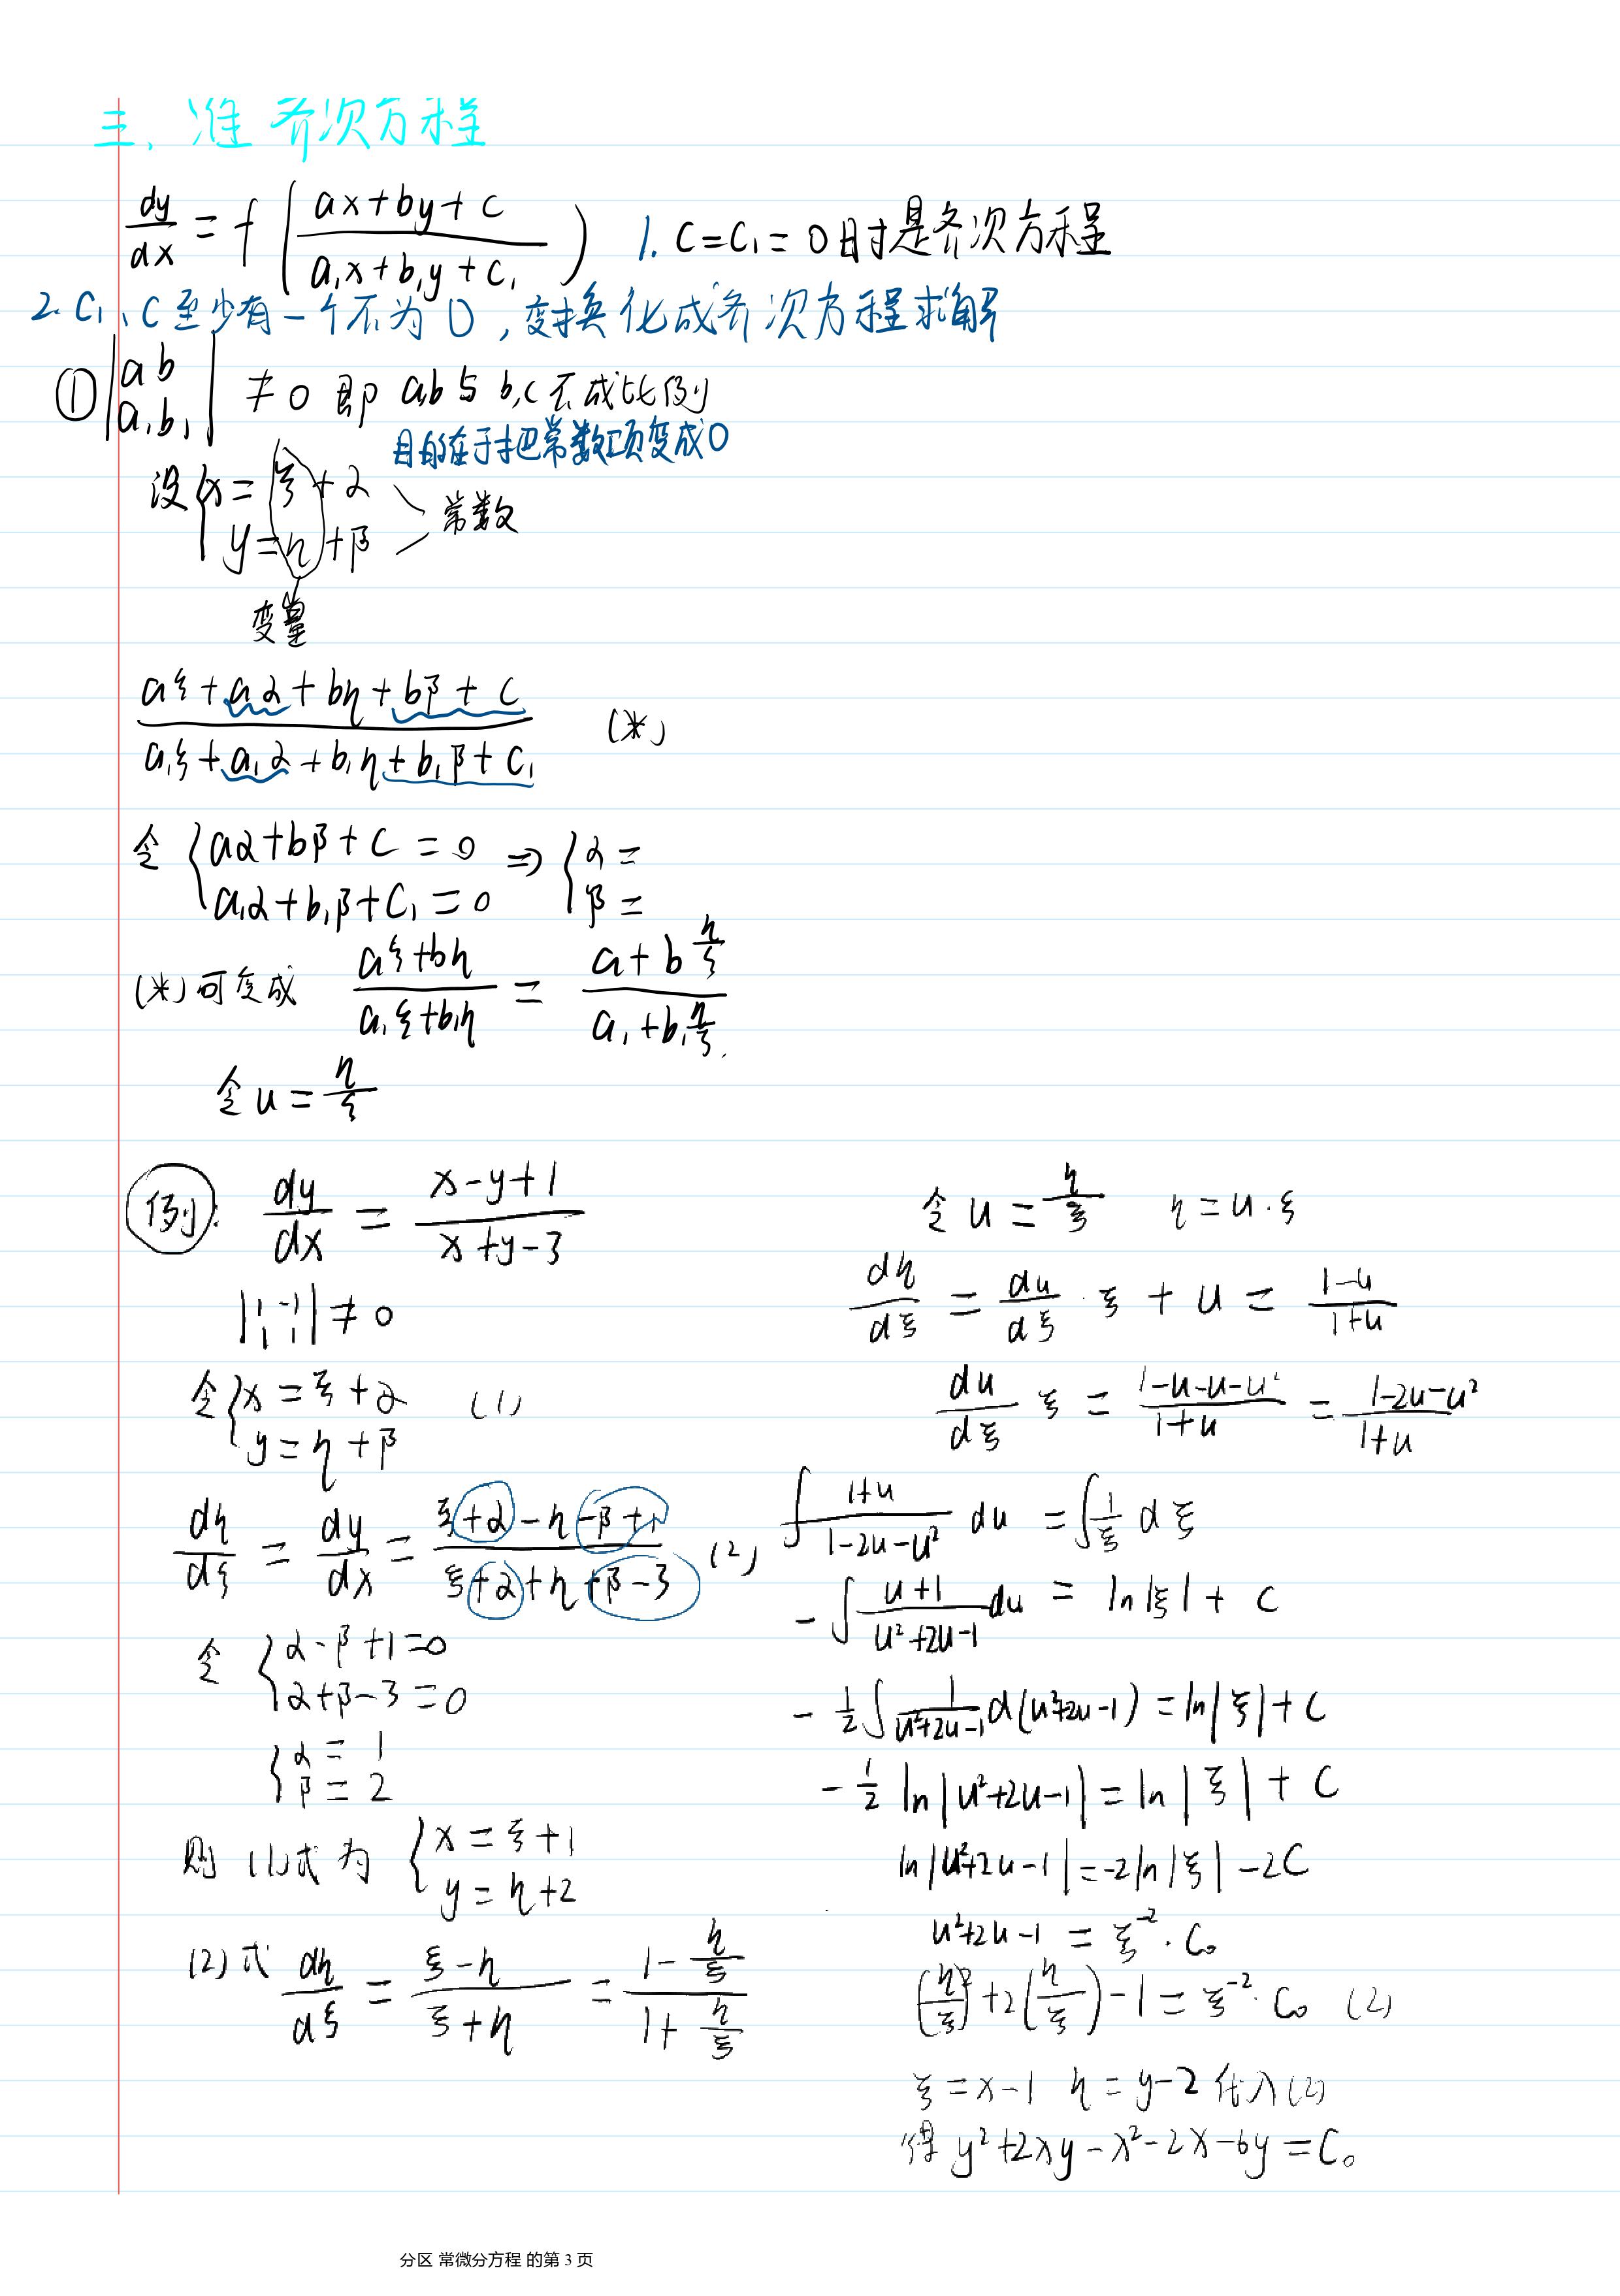 三、准齐次方程
dy/dx = f( (ax+by+c)/(a₁x+b₁y+c₁) ) 1. C=C₁=0时是齐次方程
2. C₁、C至少有一个不为0,变换化成齐次方程求解
① |a b; a₁ b₁| ≠ 0 即 a,b与b,c不成比例
目的在于把常数项变成0
设{x=ξ+α
y=η+β 常数
变量
(aξ+aα+bη+bβ+c)/(a₁ξ+a₁α+b₁η+b₁β+c₁) (*)
令 {aα+bβ+c=0 ⇒ {α=
a₁α+b₁β+C₁=0 β=
(*)可变成 (aξ+bη)/(a₁ξ+b₁η) = (a+b η/ξ)/(a₁+b₁ η/ξ)
令 u = η/ξ
例: dy/dx = (x-y+1)/(x+y-3)
|1 -1; 1 1| ≠ 0
令{x=ξ+α (1)
y=η+β
dη/dξ = dy/dx = (ξ+α-η-β+1)/(ξ+α+η+β-3) (2)
令 {α-β+1=0
α+β-3=0
{α=1
β=2
则(1)式为 {x=ξ+1
y=η+2
(2)式 dη/dξ = (ξ-η)/(ξ+η) = (1-η/ξ)/(1+η/ξ)
令 u = η/ξ η=u·ξ
dη/dξ = du/dξ · ξ + u = (1-u)/(1+u)
du/dξ ξ = (1-u-u-u²)/(1+u) = (1-2u-u²)/(1+u)
∫ (1+u)/(1-2u-u²) du = ∫ 1/ξ dξ
-∫ (u+1)/(u²+2u-1) du = ln|ξ| + C
-½∫ 1/(u²+2u-1) d(u²+2u-1) = ln|ξ| + C
-½ ln|u²+2u-1| = ln|ξ| + C
ln|u²+2u-1| = -2ln|ξ| -2C
u²+2u-1 = ξ⁻²·C₀
(η/ξ)²+2(η/ξ)-1 = ξ⁻²·C₀ (2)
ξ=x-1 η=y-2 代入(2)
得 y²+2xy-x²-2x-6y=C₀
分区 常微分方程 的第 3 页